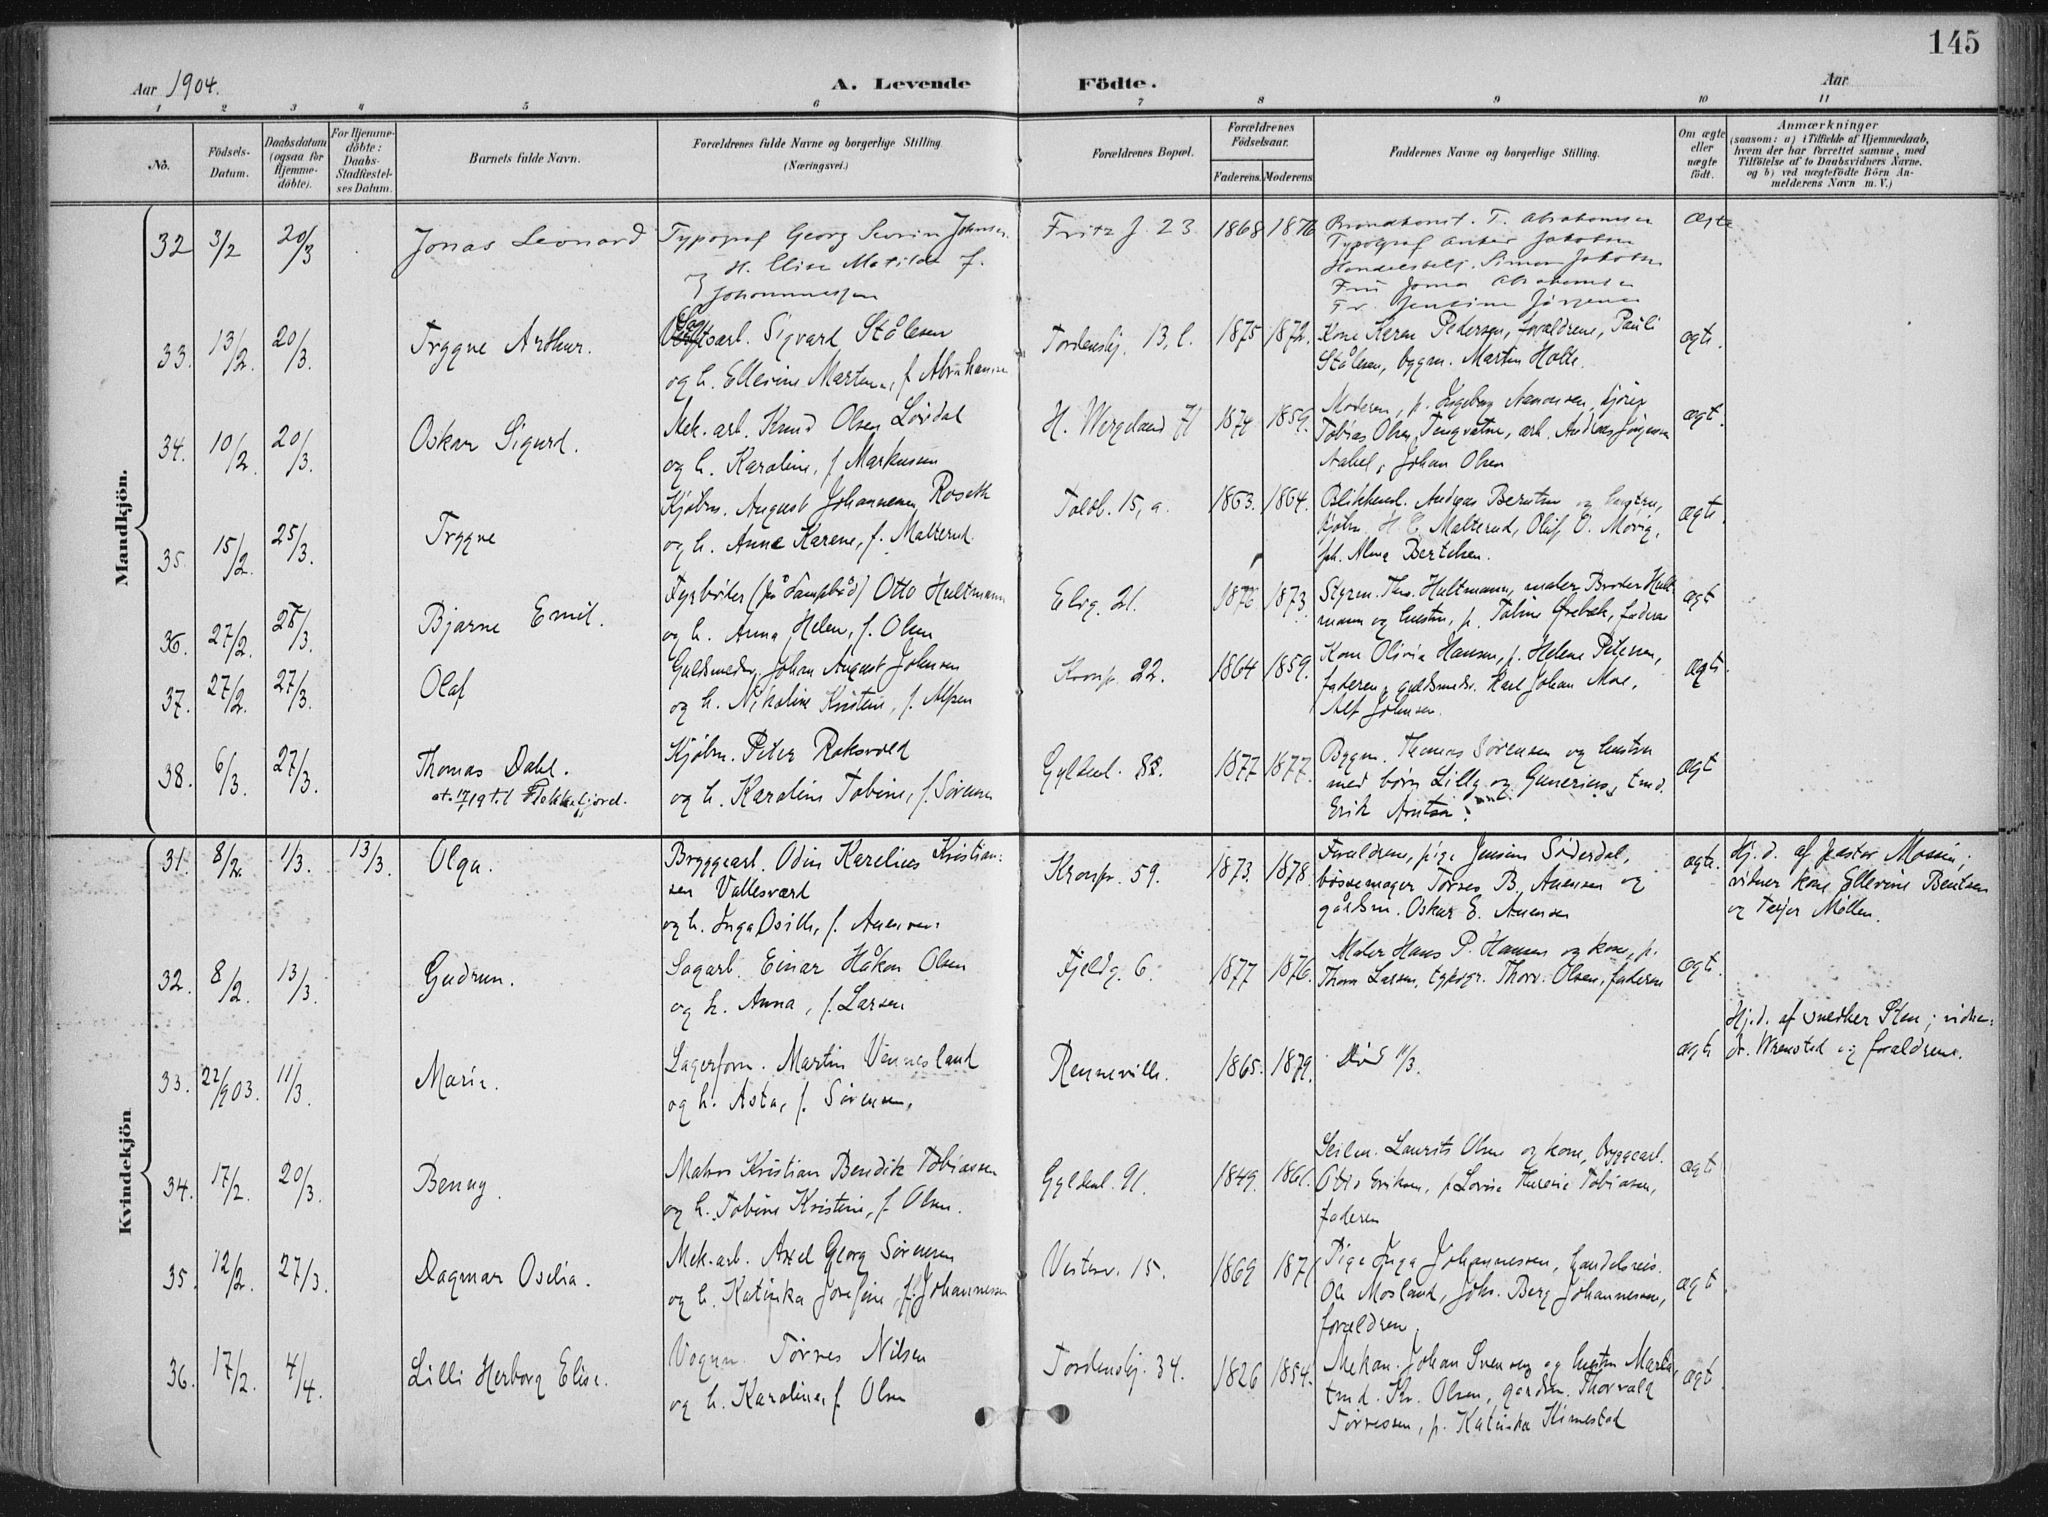 145
Aar 1904.
A. Levende Födte.
Aar
1 2 3 4 5 6 7 8 9 10 11
No.
Födsels-Datum.
Daabsdatum (ogsaa for Hjemme-döbte).
For Hjemme-döbte: Daabs-Stadfæstel-ses Datum.
Barnets fulde Navn.
Forældrenes fulde Navne og borgerlige Stilling. (Næringsvei.)
Forældrenes Bopæl.
Forældrenes Födselsaar.
Faderens. Moderens.
Faddernes Navne og borgerlige Stilling.
Om ægte eller uægte født.
Anmærkninger
(saasom: a) i Tilfælde af Hjemmedaab,
hvem der har forrettet samme, med
Tilföielse af to Daabsvidners Navne.
og b) ved uægtefödte Börn An-
melderens Navn m. V.)
Mandkjön.
32 3/2 20/3 Jonas Leonard
Typograf Georg Severin Johnsen
og H. Elise Matilde f.
Johannessen
Fritz J. 23 1868 1876
T. Abrahamsen
Typograf Anker Jakobsen
Simon Jakobsen
Fru Abrahamsen
Ægte
33. 13/2. 20/3. Trygve Arthur.
Sigvard Stålesen
og h. Ellevine Martine, f. Abrahamsen
Tordenskj. 13, l. 1875 1872.
Kone Karen Pedersen, forældrene, Pauli
Stålesen, bygm. Martin Holte.
ægte.
34. 10/2. 20/3. Oskar Sigurd.
Mek. arb. Knud Olsen Lørdal
og h. Karoline, f. Markussen
H. Wergeland 71 1874 1859.
Moderen, p. Ingeborg Aanonsen,
Tobias Olsen, arb. Andreas Jörgensen
Johan Olsen
ægt.
35. 15/2. 25/3. Trygve
Kjøbm. August Johannesen Roseth
og h. Anna Karene, f. Malterud.
Toldb. 15, a. 1863. 1864.
Andreas Berntsen og hustru,
kjøbm. H. C. Malterud, Oluf O. Movig,
frk. Alma Bertelsen.
ægte.
36. 27/2. 28/3. Bjarne Emil.
Fyrbøter (på Lampebåd) Otto Hultmann
og h. Anna Helen, f. Olsen
Elvg. 21. 1872 1873.
Styrm. Ths. Hultmann, maler Broder Hult-
mann og hustru, p. Tobine Ørebæk, faderen
ægt.
37. 27/2. 27/3. Olaf
Guldsmed Johan August Johnsen
og h. Nikoline Kristine, f. Alpen
Kronp. 22. 1864 1859.
Kone Olivia Hansen, p. Helene Petersen,
faderen, guldsmedr. Karl Johan Moe,
Alf Johnsen.
ægte.
38. 6/3. 27/3. Thomas Dahl.
at. 17/19 t. l Flekkefjord.
Kjøbm. Peter Roksvold
og h. Karoline Tobine, f. Sørensen
Gyldenl. 82. 1877 1877.
Bygm. Thomas Sørensen og hustru
med børn Lilly og Gunerius, tmd.
Erik Arntsen.
ægt
Kvindekjön
31. 8/2. 1/3. 13/3. Olga.
Bryggearb. Odin Karelius Kristian-
sen Vallesværd
og h. Inga Osilie, f. Anensen.
Kronp. 59. 1873. 1878.
Forældrene, pige Jensine Söderdal,
bössemager Torres B. Anensen og
gårdsm. Oskar E. Anensen
ægte.
Hj. d. af pastor Mossin;
vidner kone Ellevine Bentsen
og Terjer Møllen.
32. 8/2. 13/3. Gudrun.
Sagarb. Einar Håkon Olsen
og h. Anna, f. Larsen
Fjeldg. 6. 1877 1876.
Maler Hans P. Hansen og kone, p.
Thora Larsen, typogr. Thorv. Olsen, faderen
ægt.
33. 22/9 03. 11/3. Marie.
Lagerform. Martin Vennesland
og h. Asta, f. Sørensen.
Rennevill. 1865. 1879.
Død 11/3.
ægte
Hj. d. af snedker Sten; vidner:
dr. Wrensted og forældrene.
34. 17/2. 20/3. Benny.
Matros Kristian Bendik Tobiassen
og h. Tobine Kristine, f. Olsen.
Gyldenl. 91. 1849. 1861.
Seilm. Laurits Olsen og kone, bryggearb.
Otto Eriksen, p. Lovise Tobiasen,
faderen
ægte
35. 12/2. 27/3. Dagmar Osilia.
Mek. arb. Axel Georg Sørensen
og h. Katinka Josefine, f. Johannessen
Vesterv. 15. 1869 1871
Pige Inga Johannessen, handelsreis.
Ole Mosland, Johs. Berg Johannesen,
forældrene.
ægt.
36. 17/2. 4/4. Lilli Herborg Elise.
Vognm. Tørres Nilsen
og h. Karoline, f. Olsen
Tordenskj. 34. 1826 1854.
Mekan. Johan Svensen og hustru Maria,
tmd. Kr. Olsen, gardm. Thorvald
Tørressen, p. Katinka Himestad
ægt.